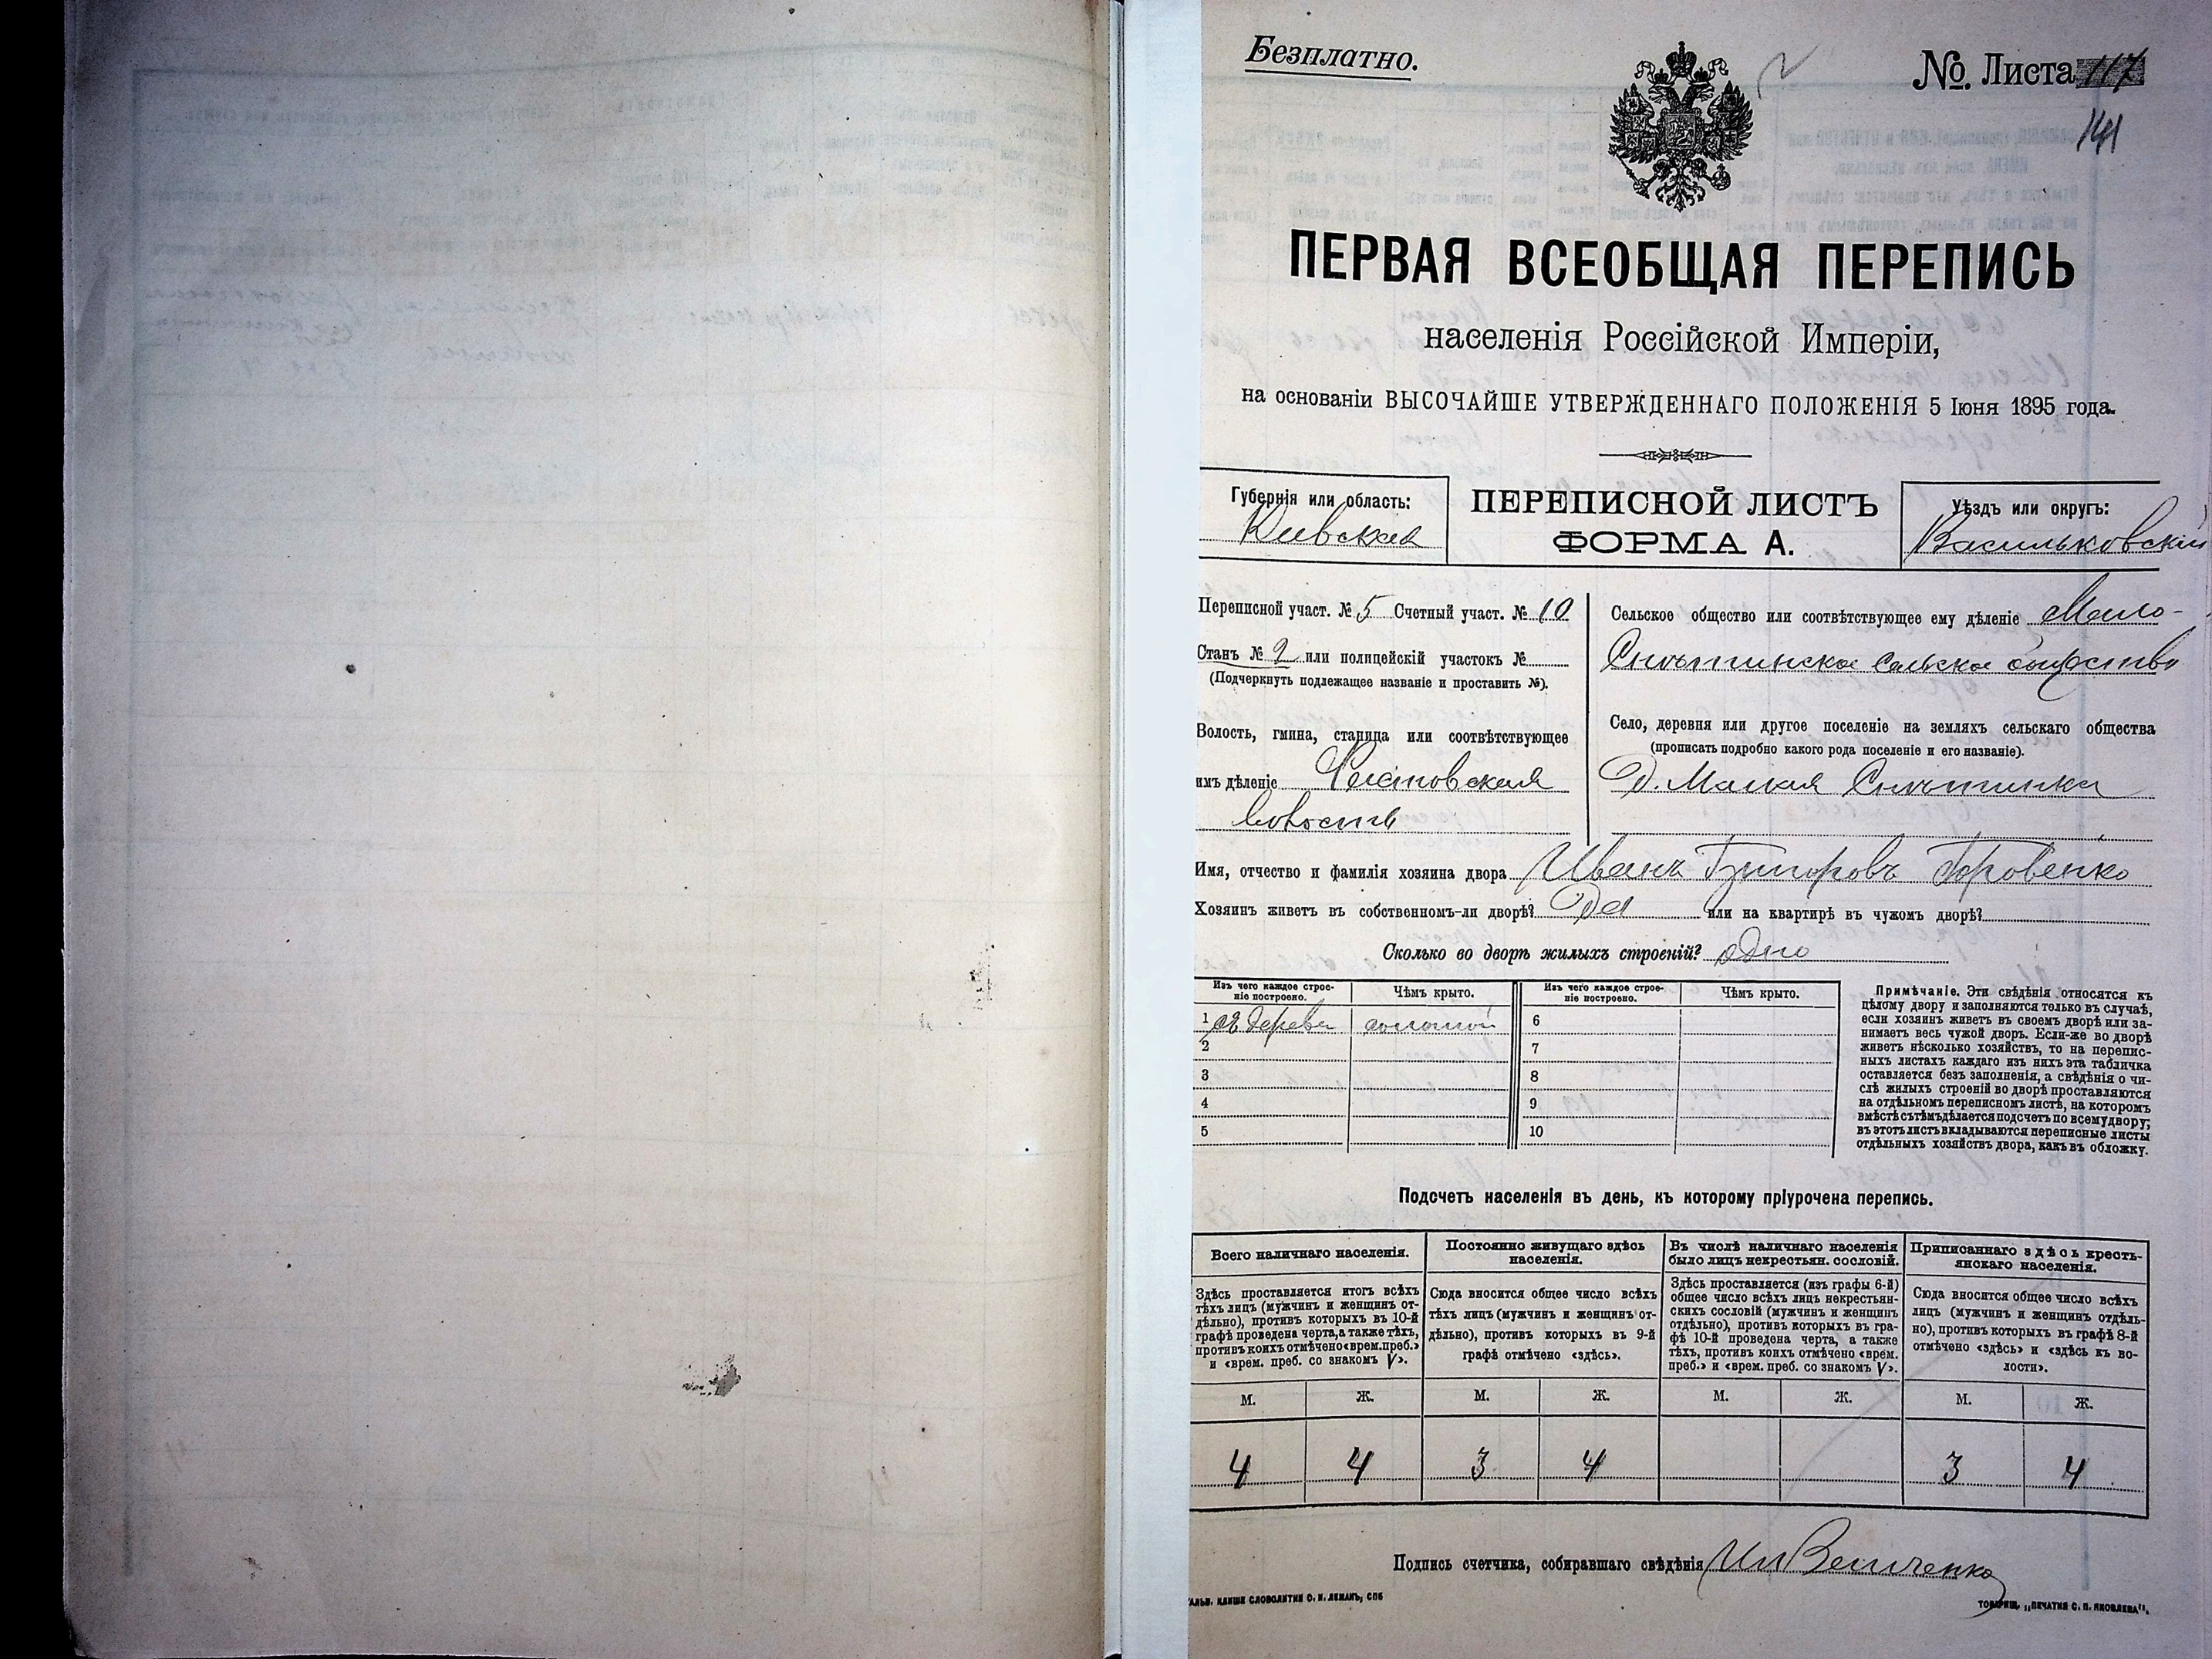 Безплатно.
№ Листа 117
141
ПЕРВАЯ ВСЕОБЩАЯ ПЕРЕПИСЬ
населенія Россійской Имперіи,
на основаніи ВЫСОЧАЙШЕ УТВЕРЖДЕННАГО ПОЛОЖЕНІЯ 5 Іюня 1895 года.
Губернія или область:
Кіевская
ПЕРЕПИСНОЙ ЛИСТЪ
ФОРМА А.
Уѣздъ или округъ:
Васильковскій
Переписной участ. № 5 Счетный участ. № 10
Станъ № 2 или полицейскій участокъ №
(Подчеркнуть подлежащее названіе и проставить №).
Волость, гмина, станица или соотвѣтствующее
имъ дѣленіе
волость
Сельское общество или соотвѣтствующее ему дѣленіе Мало-
Снѣтинское сельское общество
Село, деревня или другое поселеніе на земляхъ сельскаго общества
(прописать подробно какого рода поселеніе и его названіе).
Д. Малая Снѣтинка
Имя, отчество и фамилія хозяина двора Иванъ Григоровъ
Хозяинъ живетъ въ собственномъ-ли дворѣ? Да или на квартирѣ въ чужомъ дворѣ?
Сколько во дворѣ жилыхъ строеній? одно
Изъ чего каждое строе-
ніе построено.
Чѣмъ крыто.
Изъ чего каждое строе-
ніе построено.
Чѣмъ крыто.
1 съ дерева соломой 6
2 7
3 8
4 9
5 10
Примѣчаніе. Эти свѣдѣнія относятся къ
цѣлому двору и заполняются только въ случаѣ,
если хозяинъ живетъ въ своемъ дворѣ или за-
нимаетъ весь чужой дворъ. Если-же во дворѣ
живетъ нѣсколько хозяйствъ, то на перепис-
ныхъ листахъ каждаго изъ нихъ эта табличка
оставляется безъ заполненія, а свѣдѣнія о чи-
слѣ жилыхъ строеній во дворѣ проставляются
на отдѣльномъ переписномъ листѣ, на которомъ
вмѣстѣ съ тѣмъ дѣлается подсчетъ по всему двору;
въ этотъ листъ вкладываются переписные листы
отдѣльныхъ хозяйствъ двора, какъ въ обложку.
Подсчетъ населенія въ день, къ которому пріурочена перепись.
Всего наличнаго населенія.
Здѣсь проставляется итогъ всѣхъ
тѣхъ лицъ (мужчинъ и женщинъ от-
дѣльно), противъ которыхъ въ 10-й
графѣ проведена черта, а также тѣхъ,
противъ коихъ отмѣчено «врем. преб.»
и «врем. преб. со знакомъ V».
Постоянно живущаго здѣсь
населенія.
Сюда вносится общее число всѣхъ
тѣхъ лицъ (мужчинъ и женщинъ от-
дѣльно), противъ которыхъ въ 9-й
графѣ отмѣчено «здѣсь».
Въ числѣ наличнаго населенія
было лицъ некрестьян. сословій.
Здѣсь проставляется (изъ графы 6-й)
общее число всѣхъ лицъ некрестьян-
скихъ сословій (мужчинъ и женщинъ
отдѣльно), противъ которыхъ въ гра-
фѣ 10-й проведена черта, а также
тѣхъ, противъ коихъ отмѣчено «врем.
преб.» и «врем. преб. со знакомъ V».
Приписаннаго здѣсь кресть-
янскаго населенія.
Сюда вносится общее число всѣхъ
лицъ (мужчинъ и женщинъ отдѣль-
но), противъ которыхъ въ графѣ 8-й
отмѣчено «здѣсь» и «здѣсь къ во-
лости».
М. Ж. М. Ж. М. Ж. М. Ж.
4 4 3 4 3 4
Подпись счетчика, собиравшаго свѣдѣнія
КЛИШЕ СЛОВОЛИТНИ О. И. ЛЕМАНЪ, СПБ
ТОВАРИЩ. „ПЕЧАТНЯ С. П. ЯКОВЛЕВА".